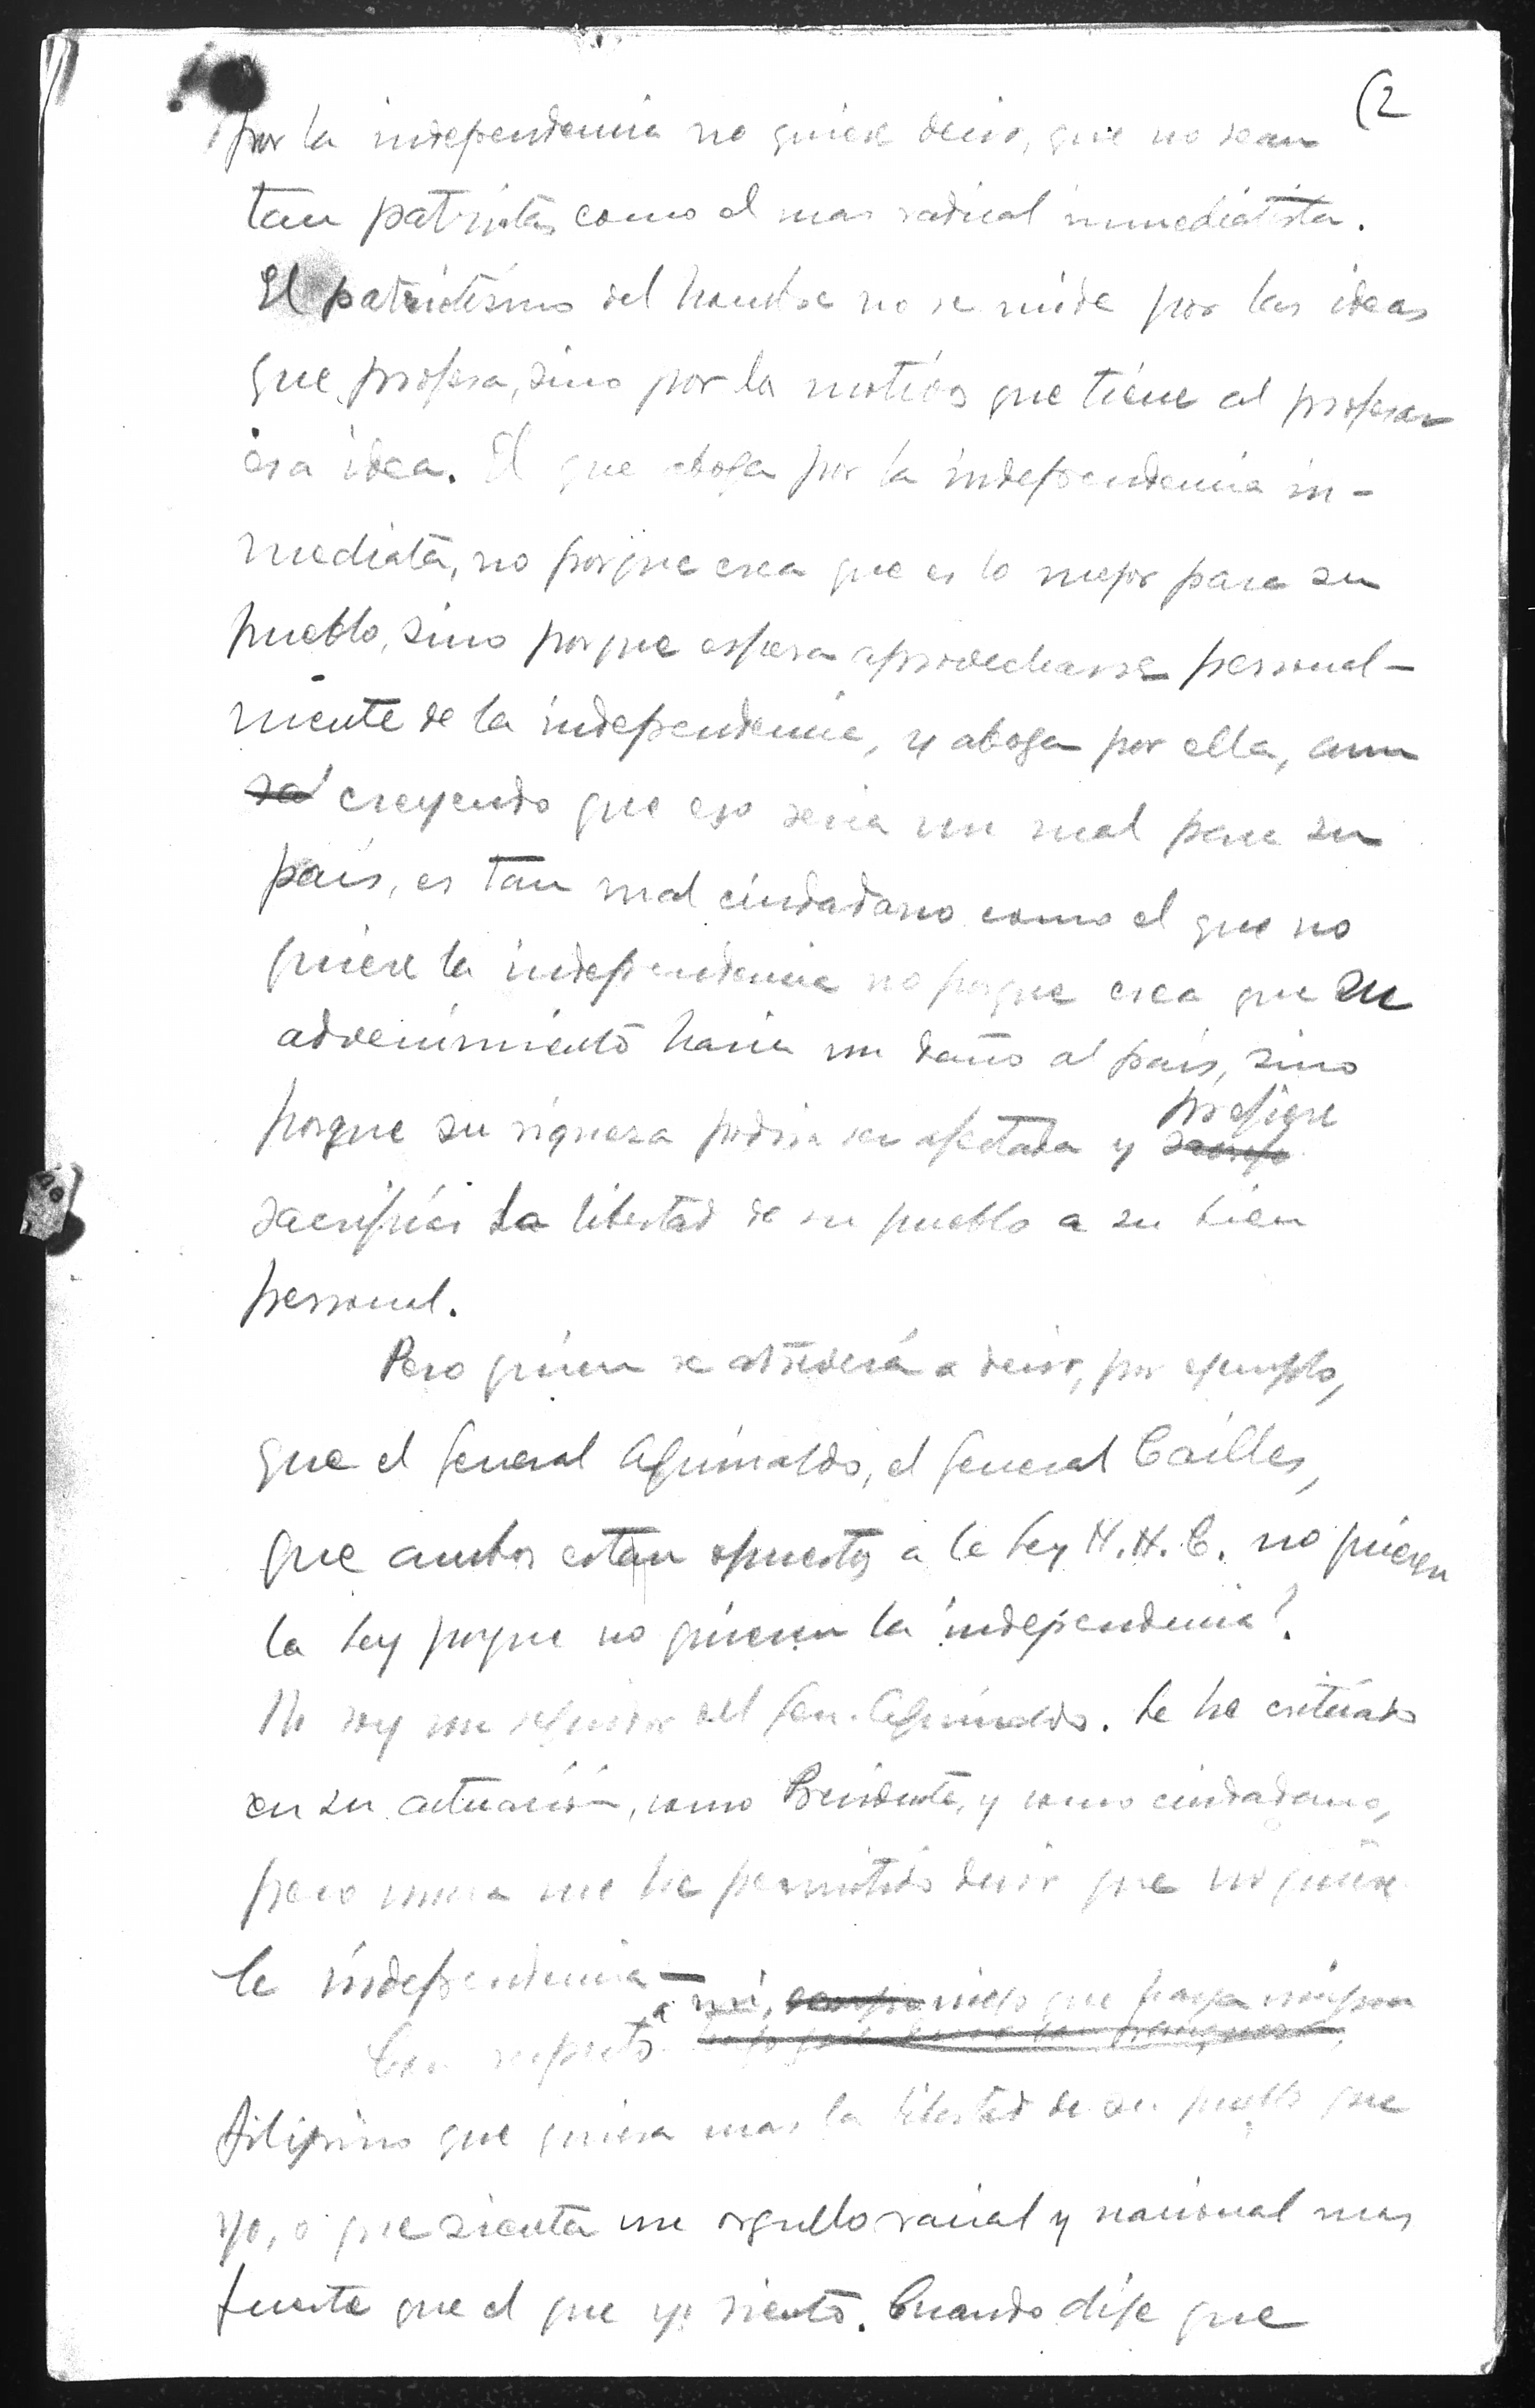 (2
por la independencia no quiere decir, que no sean
tan patriotas como el mas radical inmediatista.
El patriotismo del hombre no se mide por las ideas
que profesa, sino por los motivos que tiene al profesar
esa idea. El que aboga por la independencia in-
mediata, no porque crea que es lo mejor para su
pueblo, sino porque espera aprovecharse personal-
mente de la independencia, y aboga por ella, aun
creyendo que eso seria un mal para su
pais, es tan mal ciudadano como el que no
quiere la independencia no porque crea que su
advenimiento haria un daño al pais, sino
porque su riqueza podria ser afectada y prefiere
sacrificar la libertad de su pueblo a su bien
personal.
Pero quien se atreverá a decir, por ejemplo,
que el General Aguinaldo, el General Cailles,
que ambos estan opuestos a la ley H.H.C. no quieren
la ley porque no quieren la independencia?
No soy un seguidor del Gen. Aguinaldo. Le he criticado
en su actuación, como Presidente, y como ciudadano,
pero nunca me he permitido decir que no quiere
la independencia —
Con respecto a mi, niego que haya ningun
filipino que quiera mas la libertad de su pueblo que
yo, o que sienta un orgullo racial y nacional mas
fuerte que el que yo siento. Cuando dije que